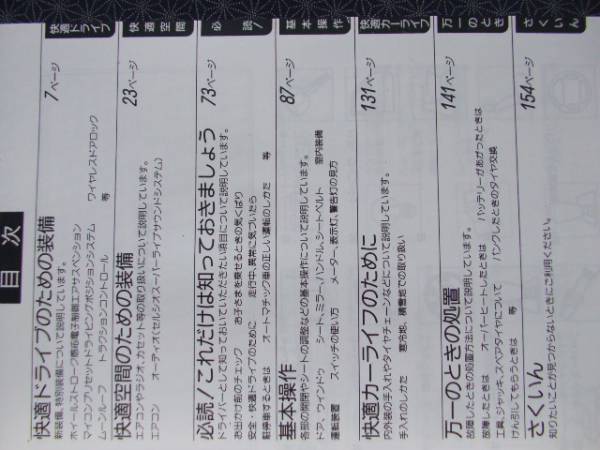 目次
快適ドライブのための装備 7ページ
新装備、特別装備について説明しています。
ホイールストローク感応電子制御エアサスペンション
マイコンプリセットドライビングポジションシステム ワイヤレスドアロック
ムーンルーフ トラクションコントロール 等
快適ドライブ
快適空間のための装備 23ページ
エアコンやラジオ、カセット等の取り扱いについて説明しています。
エアコン オーディオ(セルシオスーパーライブサウンドシステム)
快適空間
必読!これだけは知っておきましょう 73ページ
ドライバーとして知っておいていただきたい項目について説明しています。
お出かけ前のチェック お子さまを乗せるときの気くばり
安全・快適ドライブのために 走行中、異常に気づいたら
駐停車するときは オートマチック車の正しい運転のしかた 等
必読!
基本操作 87ページ
各部の開閉やシートの調整などの基本操作について説明しています。
ドア、ウィンドゥ シート、ミラー、ハンドル、シートベルト 室内装備
運転装置 スイッチの使い方 メーター、表示灯、警告灯の見方
基本操作
快適カーライフのために 131ページ
内外装の手入れやタイヤチェーンなどについて説明しています。
手入れのしかた 寒冷地、積雪地での取り扱い
快適カーライフ
万一のときの処置 141ページ
故障したときの処置方法について説明しています。
故障したときは オーバーヒートしたときは バッテリーがあがったときは
工具、ジャッキ、スペアタイヤについて パンクしたときのタイヤ交換
けん引してもらうときは 等
万一のとき
さくいん 154ページ
知りたいことが見つからないときにご利用ください。
さくいん